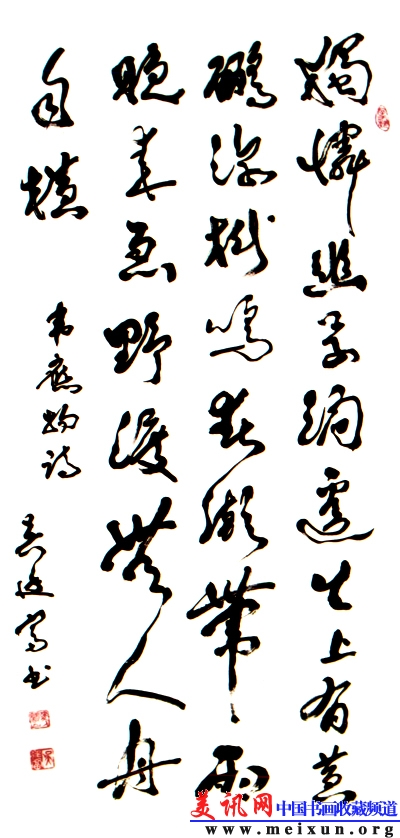 獨憐幽草澗邊生上有黄
鹂深树鸣春潮帶雨
晚来急野渡無人舟
自横
韦應物诗
书
美讯网 中国书画收藏频道
www.meixun.org